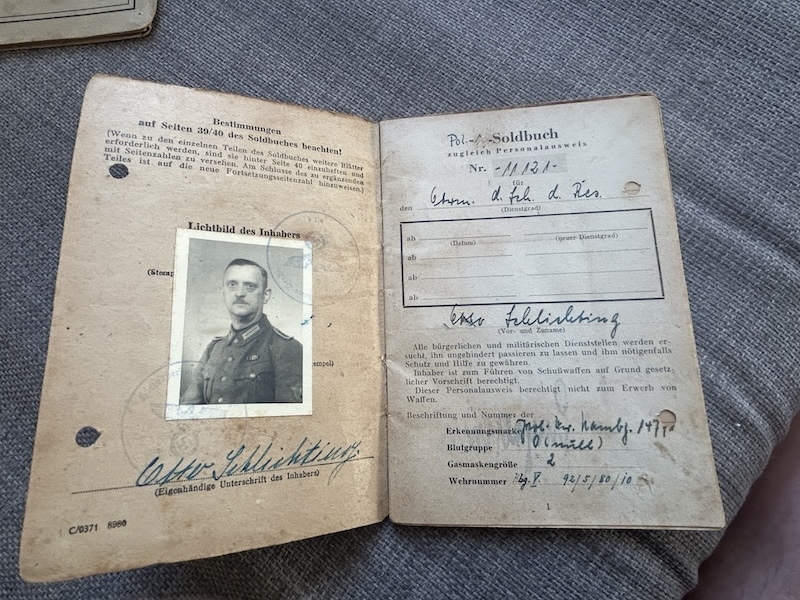 Bestimmungen
auf Seiten 39/40 des Soldbuches beachten!
(Wenn zu den einzelnen Teilen des Soldbuches weitere Blätter
erforderlich werden, sind sie hinter Seite 40 einzuheften und
mit Seitenzahlen zu versehen. Am Schlusse des zu ergänzenden
Teiles ist auf die neue Fortsetzungsseitenzahl hinzuweisen.)
Lichtbild des Inhabers
Otto Schlichting
(Eigenhändige Unterschrift des Inhabers)
C/0371 8980
Pol.- Soldbuch
zugleich Personalausweis
Nr. -11121-
für
den Obwm. d. Sch. d. Res.
(Dienstgrad)
ab
(Datum) (neuer Dienstgrad)
ab
ab
ab
Otto Schlichting
(Vor- und Zuname)
Alle bürgerlichen und militärischen Dienststellen werden er-
sucht, ihn ungehindert passieren zu lassen und ihm nötigenfalls
Schutz und Hilfe zu gewähren.
Inhaber ist zum Führen von Schußwaffen auf Grund gesetz-
licher Vorschrift berechtigt.
Dieser Personalausweis berechtigt nicht zum Erwerb von
Waffen.
Beschriftung und Nummer der
Erkennungsmarke
Blutgruppe 0 (null)
Gasmaskengröße 2
Wehrnummer Hbg. V. 92/5/80/10
1